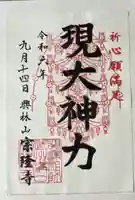 祈心願満足
現大神力
令和六年
九月十四日 興林山
宗隆寺